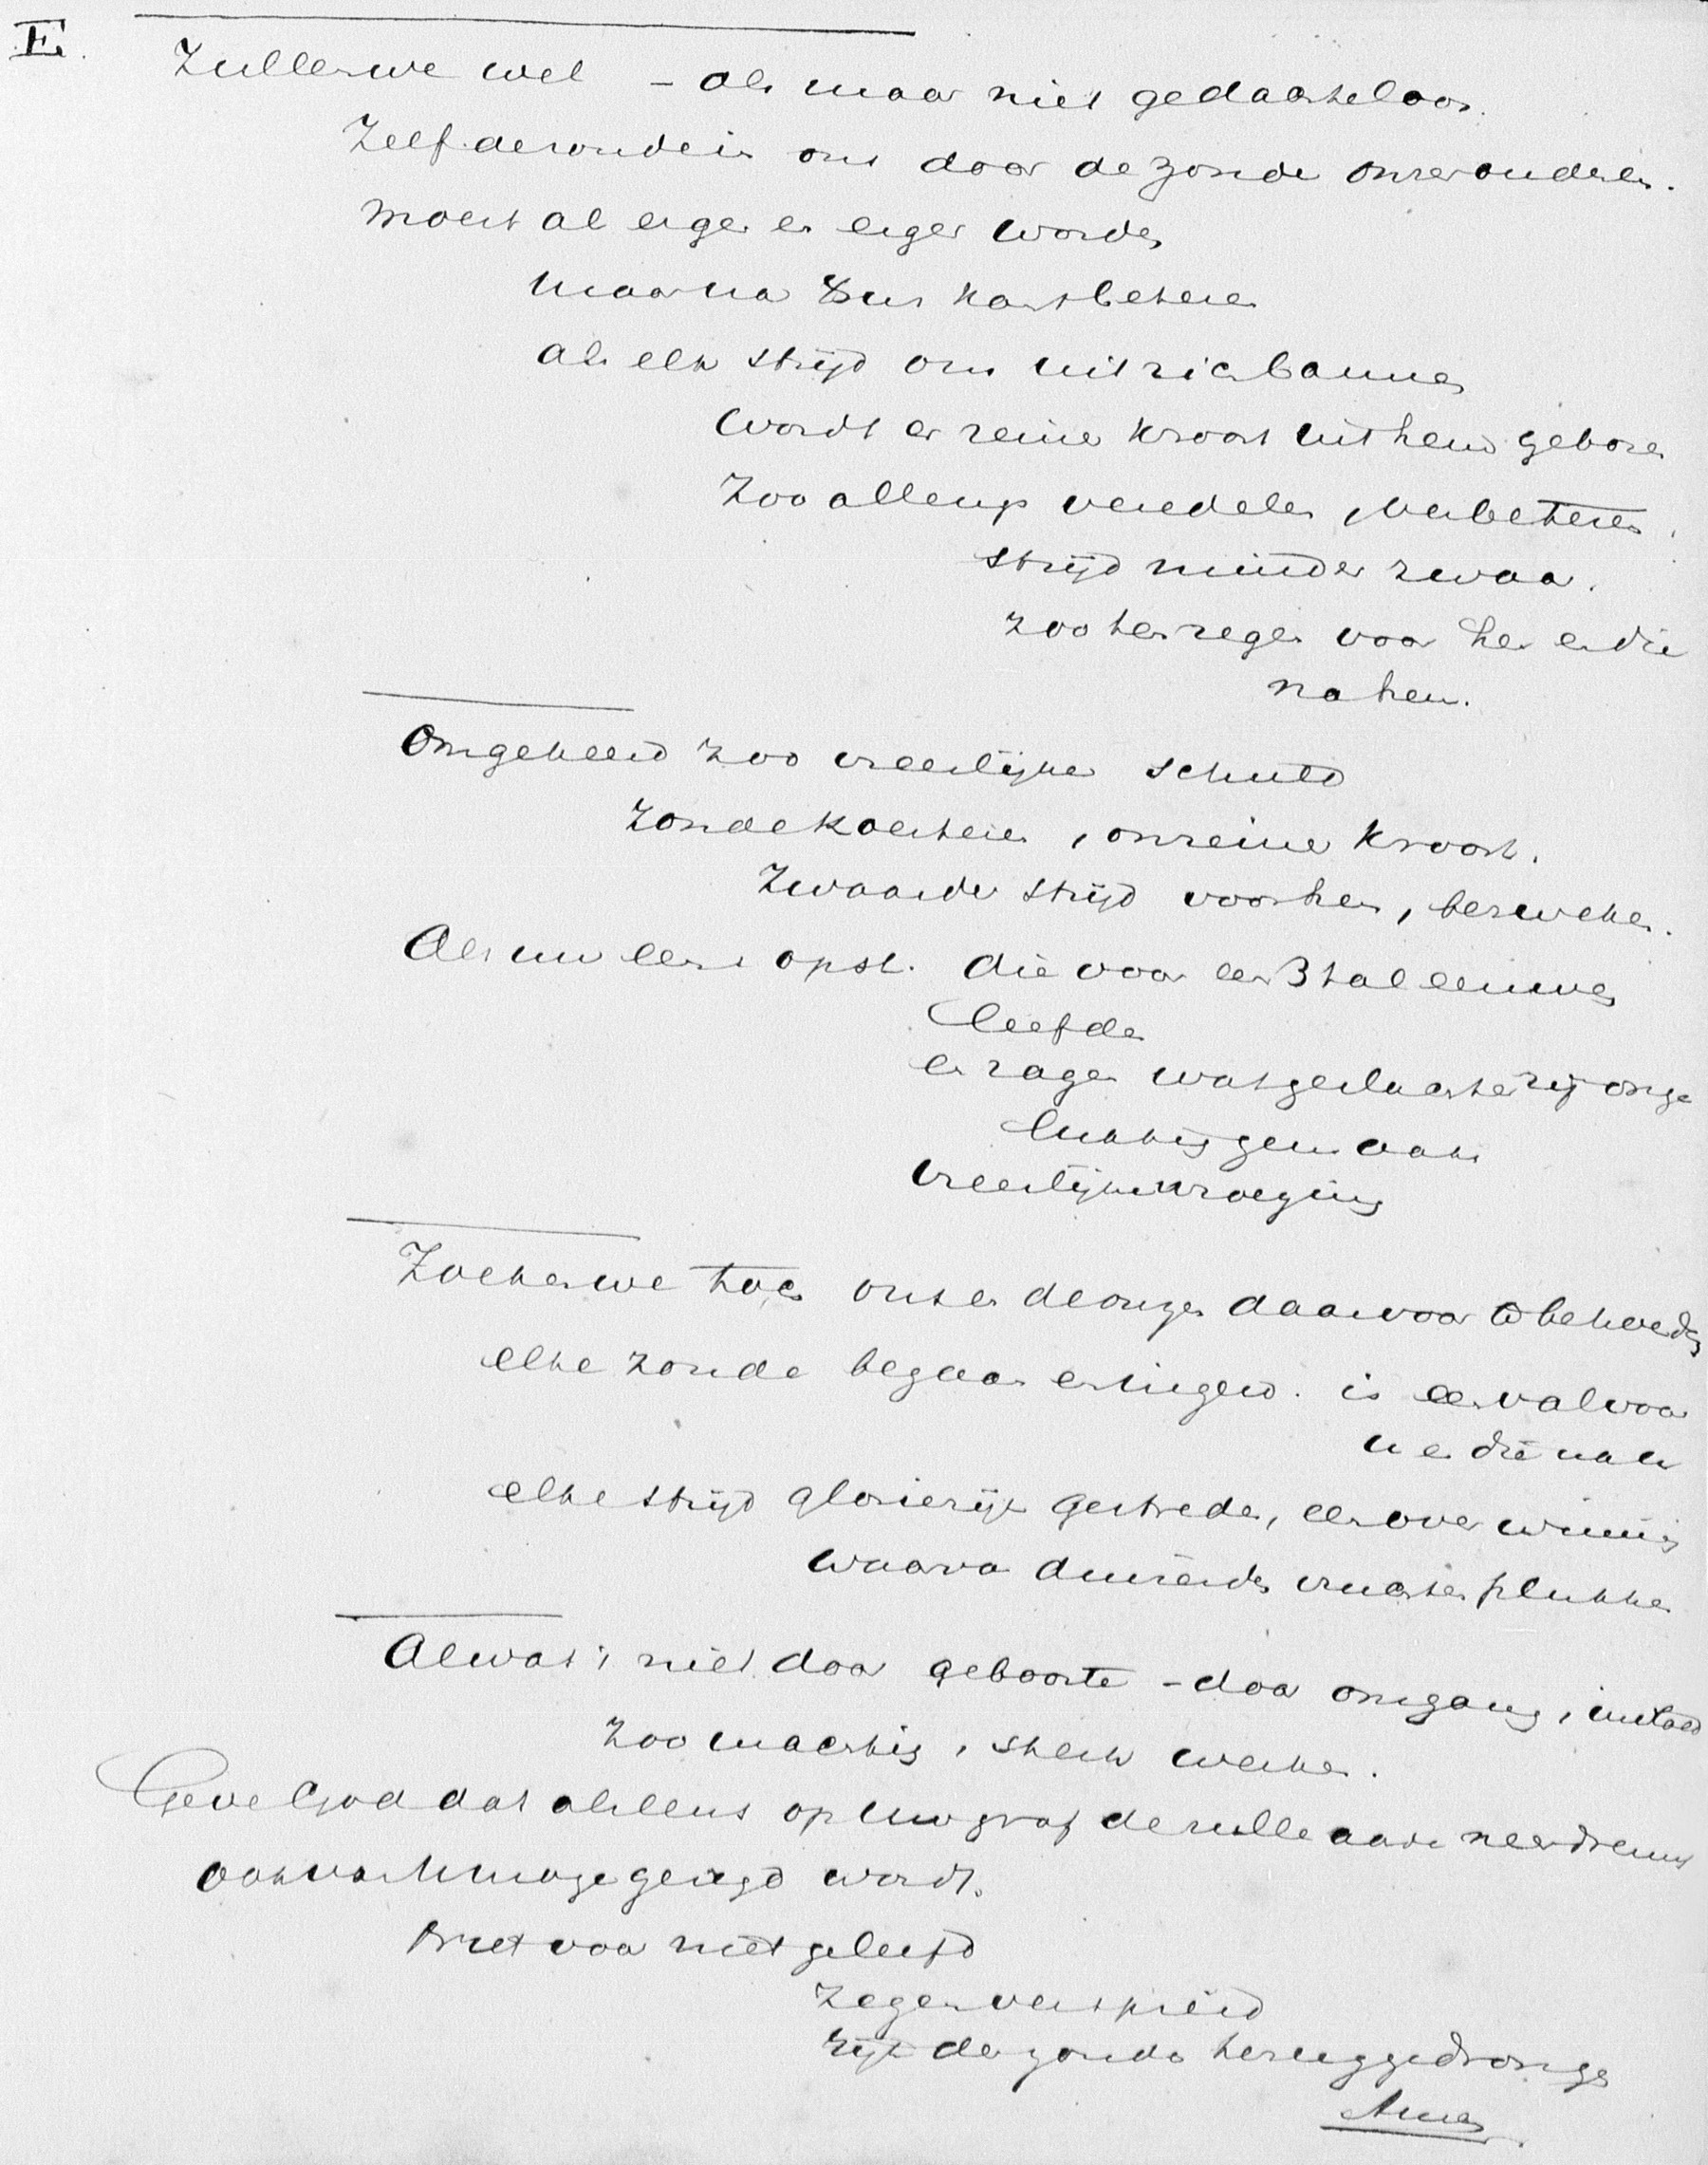 E.
Zullen we wel – als maar niet gedachteloos.
Zelf de wonde in ons door de zonde
moet al erger en erger worden
maar na
als elk strijd om uit zich bannen
wordt er reiner kroost uit hem geboren
Zoo allengs veredelen, verbeteren.
strijd minder zwaar.
zoo ten zegen voor hen en die
na hen.
Omgekeerd zoo vreeslijke schuld
Zonde koesteren, onreiner kroost.
Zwaarder strijd voor hen, bezweken.
Als nu eens opst. die voor een 3 tal eeuwen
leefden
en zagen wat geslachten zij onge
lukkig gemaakt
vreeslijke wroeging
Zoeken we toch ons en de onzen daarvoor te behoeden
elke zonde begaan en ingew. is een val voor
u en die na u
elke strijd glorierijk gestreden, een overwinning
waarvan duizenden vruchten plukken
Al wat is niet door geboorte – door omgang, invloed
zoo machtig, sterk werken.
Geve God dat als eens op uw graf de zulle aarde neerdreunt
ook van U moge gezegd word.
Niet voor niet geleefd
zegen verspreid
rijk der zonde teruggedrongen
Amen